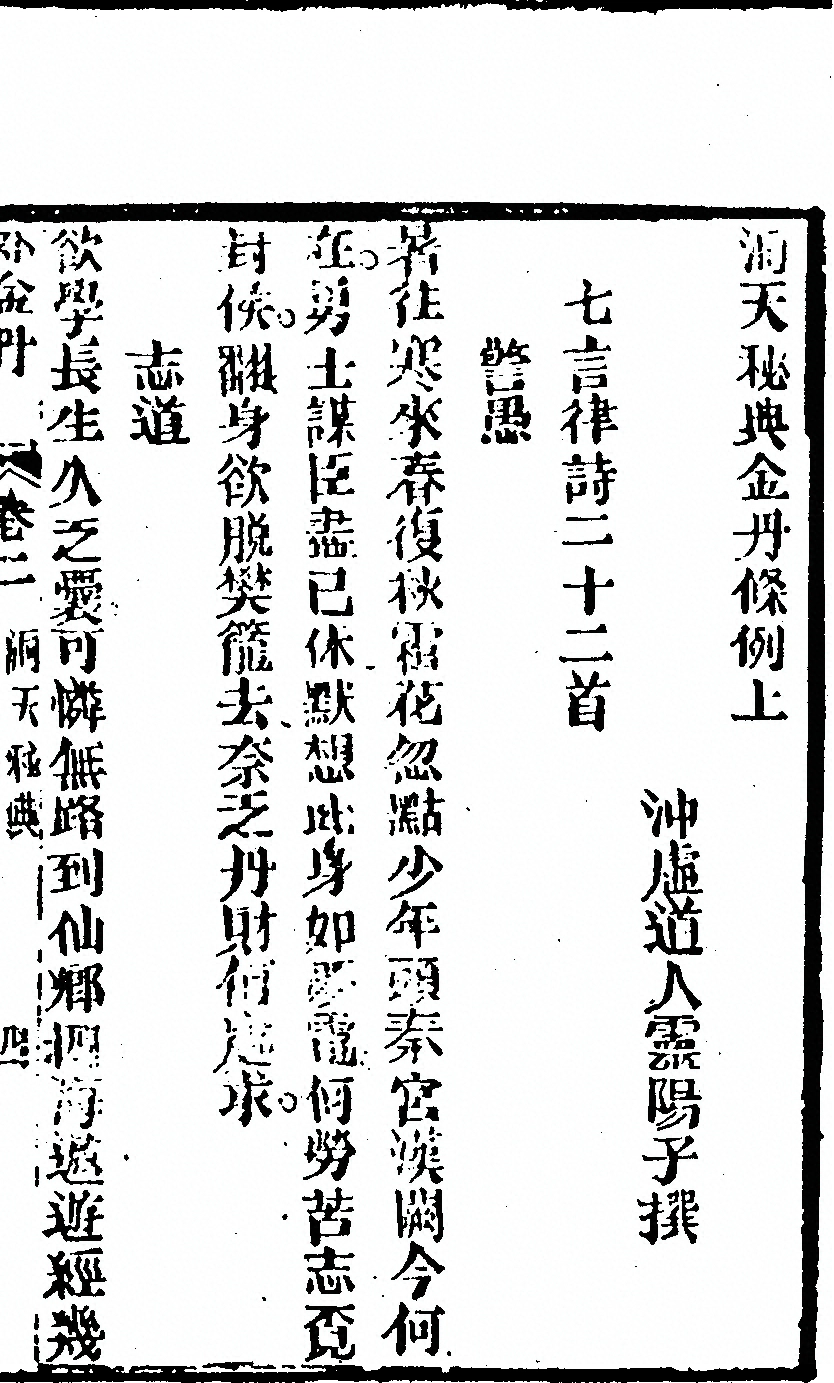 洞天秘典金丹條例上
沖虛道人靈陽子撰
七言律詩二十二首
警愚
暑往寒來春復秋霜花忽點少年頭秦宮漢闕今何
在勇士謀臣盡已休默想此身如夢電何勞苦志覓
封侯翻身欲脫樊籠去奈乏丹財何處求
志道
欲學長生久乏囊可憐無路到仙鄉海遨遊經幾
外金丹 卷二 洞天秘典